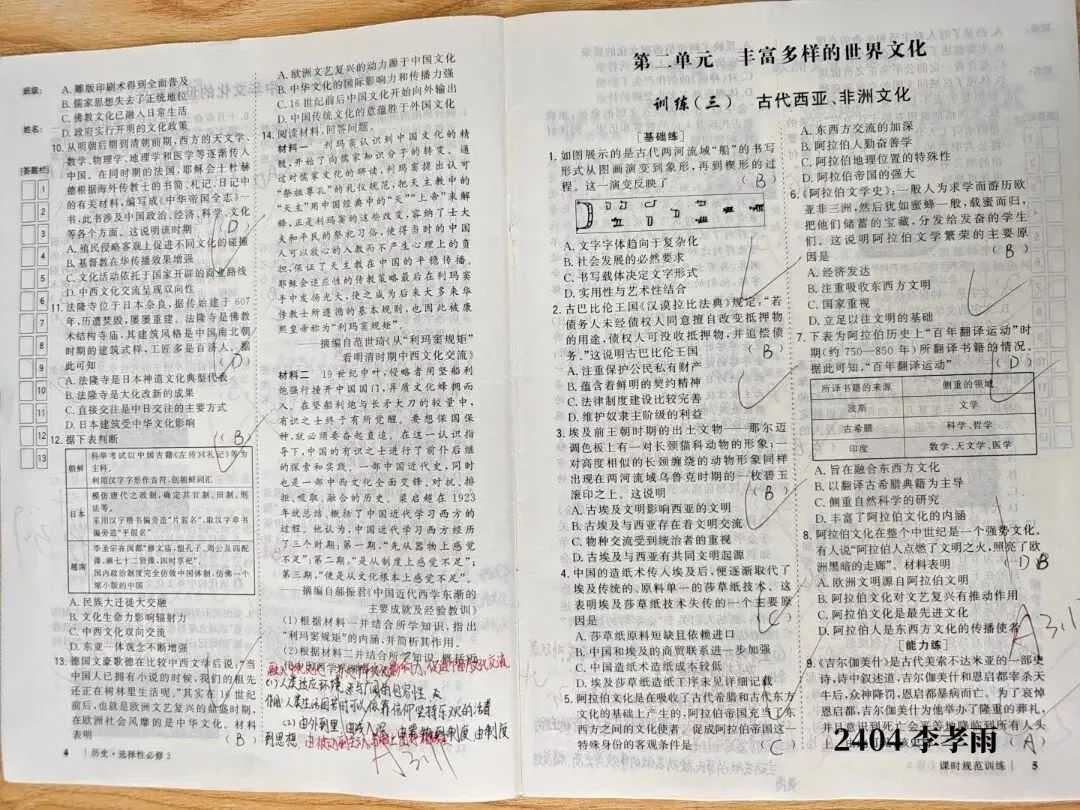 班级:
姓名:
答题栏
1
2
3
4
5
6
7
8
9
10
11
12
13
A. 雕版印刷术得到全面普及
B. 儒家思想失去了正统地位
C. 佛教文化已融入日常生活
D. 政府实行开明的文化政策
10. 从明朝后期到清朝前期,西方的天文学、
数学、物理学、地理学和医学等逐渐传入
中国。在同时期的法国,耶稣会士杜赫
德根据海外传教士的书简、札记、日记中
的有关材料,编写成《中华帝国全志》一
书,此书涉及中国政治、经济、科学、文化
等各个方面。这说明该时期 (D)
A. 殖民侵略客观上促进不同文化的碰撞
B. 基督教在华传播效果增强
C. 文化活动依托于国家开辟的商业路线
D. 中西文化交流呈现双向性
11. 法隆寺位于日本奈良,据传始建于607
年,历遭焚毁,屡屡重建。法隆寺是佛教
木结构寺庙,其建筑风格是中国南北朝
时期的建筑式样,工匠多是百济人。据
此可知 (D)
A. 法隆寺是日本神道文化典型代表
B. 法隆寺是大化改新的成果
C. 直接交往是中日交往的主要方式
D. 日本建筑受中华文化影响
12. 据下表判断 (B)
朝鲜 科举考试以中国古籍《左传》《礼记》等为
主科。
利用汉字字形作音符,创朝鲜词汇
日本 模仿唐代之政制,确定其官制、田制、刑
法等。
采用汉字楷书偏旁造“片假名”,取汉字草书
偏旁造“平假名”
越南 李圣宗在国都“修文庙,塑孔子、周公及四配
像,画七十二贤像,四时享祀”
国内政治制度完全仿效中国体制,仿佛一个
缩小版的中国
A. 民族大迁徙大交融
B. 文化生命力影响辐射力
C. 中西文化双向交流
D. 东亚一体观念不断增强
13. 德国文豪歌德在比较中西文学后说:“当
中国人已拥有小说的时候,我们的祖先
还正在树林里生活呢。”其实在16世纪
前后,也就是欧洲文艺复兴的鼎盛时期,
在欧洲社会风靡的是中华文化。材料
表明 (B)
4 历史·选择性必修3
A. 欧洲文艺复兴的动力源于中国文化
B. 中华文化的国际影响力和传播力强
C. 16世纪前后中国文化开始向外输出
D. 中国传统文化的意蕴胜于外国文化
14. 阅读材料,回答问题。
材料一 利玛窦认识到中国文化的精
髓,开始了向儒家知识分子的转变。通
过对儒家文化的研读,利玛窦提出认可
“祭祖尊孔”的礼仪规范,把天主教中的
“天主”用中国经典中的“天”“上帝”来解
释,正是利玛窦的这些改变,容纳了士大
夫和平民的祭祀习俗,使得当时的中国
人可以放心的入教而不产生心理上的负
担,保证了天主教在中国的平稳传播。
耶稣会适应性的传教策略最后在利玛窦
手中发扬光大,使之成为后来大多来华
传教士所遵循的基本规则,也因此被康
熙皇帝称为“利玛窦规矩”
——摘编自范世琦《从“利玛窦规矩”
看明清时期中西文化交流》
材料二 19世纪中叶,侵略者用坚船利
炮强行撞开中国国门,异质文化蜂拥而
入。在坚船利炮与长矛大刀的较量中,
有识之士终于有所觉醒。要想保国保
种,就必须要奋起直追。在这一认识指
导下,中国的有识之士进行了前仆后继
的探索和实践。一部中国近代史,同时
也是一部中西文化全面交锋、对抗、排
拒、吸取、融合的历史。梁启超在1923
年就总结、概括了中国近代学习西方的
过程。他认为,中国近代学习西方经历
了三个时期:第一期,“先从器物上感觉
不足”;第二期,“是从制度上感觉不足”;
第三期,“便是从文化根本上感觉不足”。
——摘编自郝振君《中国近代西学东渐的
主要成就及经验教训》
(1)根据材料一并结合所学知识,指出
“利玛窦规矩”的内涵,并简析其作用。
(2)根据材料二并结合所学知识,概括
(2)由外到里
到思想
A 3.11
第二单元 丰富多样的世界文化
训练(三) 古代西亚、非洲文化
[基础练]
1. 如图展示的是古代两河流域“船”的书写
形式从图画演变到象形,再到楔形的过
程。这一演变反映了 (B)
A. 文字字体趋向于复杂化
B. 社会发展的必然要求
C. 书写载体决定文字形式
D. 实用性与艺术性结合
2. 古巴比伦王国《汉谟拉比法典》规定:“若
债务人未经债权人同意擅自改变抵押物
的用途,债权人可没收抵押物,并追偿债
务。”这说明古巴比伦王国 (B)
A. 注重保护公民私有财产
B. 蕴含着鲜明的契约精神
C. 法律制度建设比较完善
D. 维护奴隶主阶级的利益
3. 埃及前王朝时期的出土文物——那尔迈
调色板上有一对长颈猫科动物的形象;一
对高度相似的长颈缠绕的动物形象同样
出现在两河流域乌鲁克时期的一枚碧玉
滚印之上。这说明 (B)
A. 古埃及文明影响西亚的文明
B. 古埃及与西亚存在着文明交流
C. 物种交流受到统治者的重视
D. 古埃及与西亚有共同文明起源
4. 中国的造纸术传入埃及后,便逐渐取代了
埃及传统的、原料单一的莎草纸技术。这
表明埃及莎草纸技术失传的一个主要原
因是
A. 莎草纸原料短缺且依赖进口
B. 中国和埃及的商贸联系进一步加强
C. 中国造纸术造纸成本较低
D. 埃及莎草纸造纸工序未见详细记载
5. 阿拉伯文化是在吸收了古代希腊和古代东方
文化的基础上产生的,阿拉伯帝国充当了东
西方之间的文化使者。促成阿拉伯帝国这一
特殊身份的客观条件是 (C)
A. 东西方交流的加深
B. 阿拉伯人勤奋善学
C. 阿拉伯地理位置的特殊性
D. 阿拉伯帝国的强大
6. 《阿拉伯文学史》:一般人为求学而游历欧
亚非三洲,然后犹如蜜蜂一般,载蜜而归,
把他们储蓄的宝藏,分发给发奋的学生
们。这说明阿拉伯文学繁荣的主要原
因是 (B)
A. 经济发达
B. 注重吸收东西方文明
C. 国家重视
D. 立足以往文明的基础
7. 下表为阿拉伯历史上“百年翻译运动”时
期(约750—850年)所翻译书籍的情况。
据此可知,“百年翻译运动” (D)
所译书籍的来源 侧重的领域
波斯 文学
古希腊 科学、哲学
印度 数学、天文学、医学
A. 旨在融合东西方文化
B. 以翻译古希腊典籍为主导
C. 侧重自然科学的研究
D. 丰富了阿拉伯文化的内涵
8. 阿拉伯文化在整个中世纪是一个强势文化。
有人说“阿拉伯人点燃了文明之火,照亮了欧
洲黑暗的走廊”。材料表明 (D B
A. 欧洲文明源自阿拉伯文明
B. 阿拉伯文化对文艺复兴有推动作用
C. 阿拉伯文化是最先进文化
D. 阿拉伯人是东西方文化的传播使者
A 3.11
[能力练]
9. 《吉尔伽美什》是古代美索不达米亚的一部史
诗,诗中叙述道,吉尔伽美什和恩启都宰杀天
牛后,众神降罚,恩启都暴病而亡。为了哀悼
恩启都,吉尔伽美什为他举办了隆重的葬礼,
并且意识到死亡会平等地降临到所有人头
(A)
2404 李孝雨
课时规范训练 5